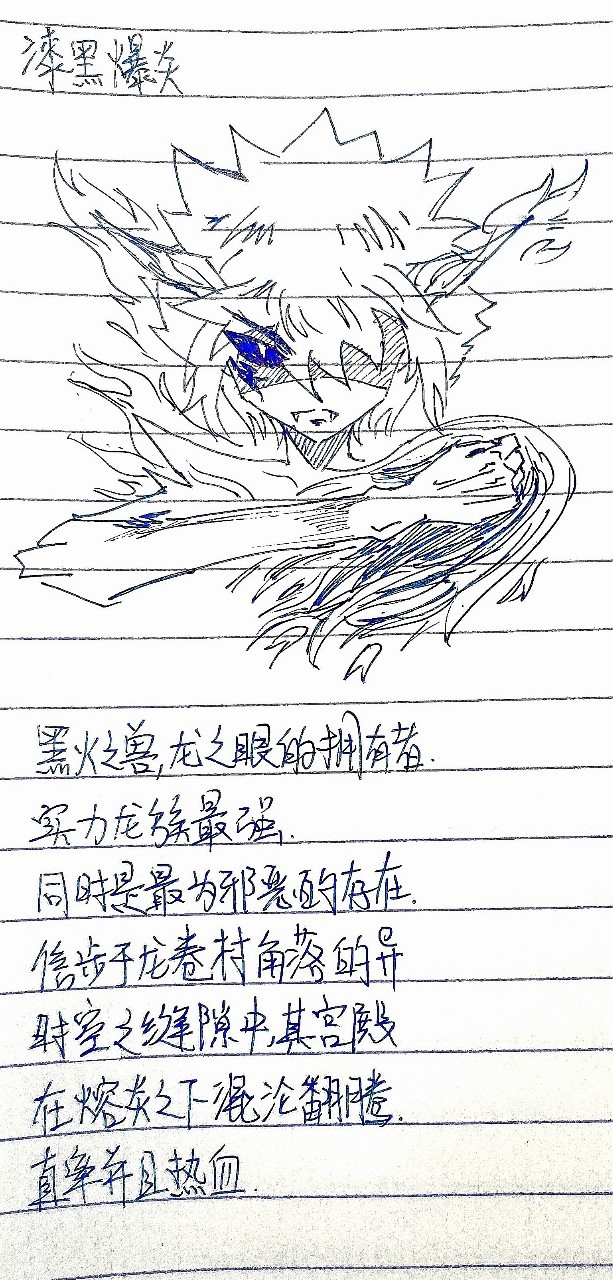 漆黑爆炎
黑火之兽,龙之眼的拥有者.
实力龙族最强.
同时是最为邪恶的存在.
信步于龙卷村角落的异
时空之缝隙中,其宫殿
在熔炎之下混沦翻腾.
真率并且热血.